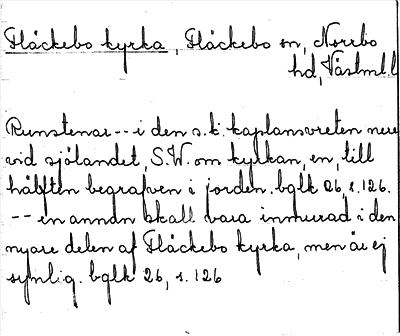 Fläckebo kyrka, Fläckebo sn, Norrbo
hd, Västml.l
Runstenar -- i den s.k. kaplansvreten nere
vid sjölandet, S.W. om kyrkan, en, till
hälften begrafven i jorden. bglk 26, s. 126.
-- en annan skall vara inmurad i den
nyare delen af Fläckebo kyrka, men är ej
synlig. bglk 26, s. 126